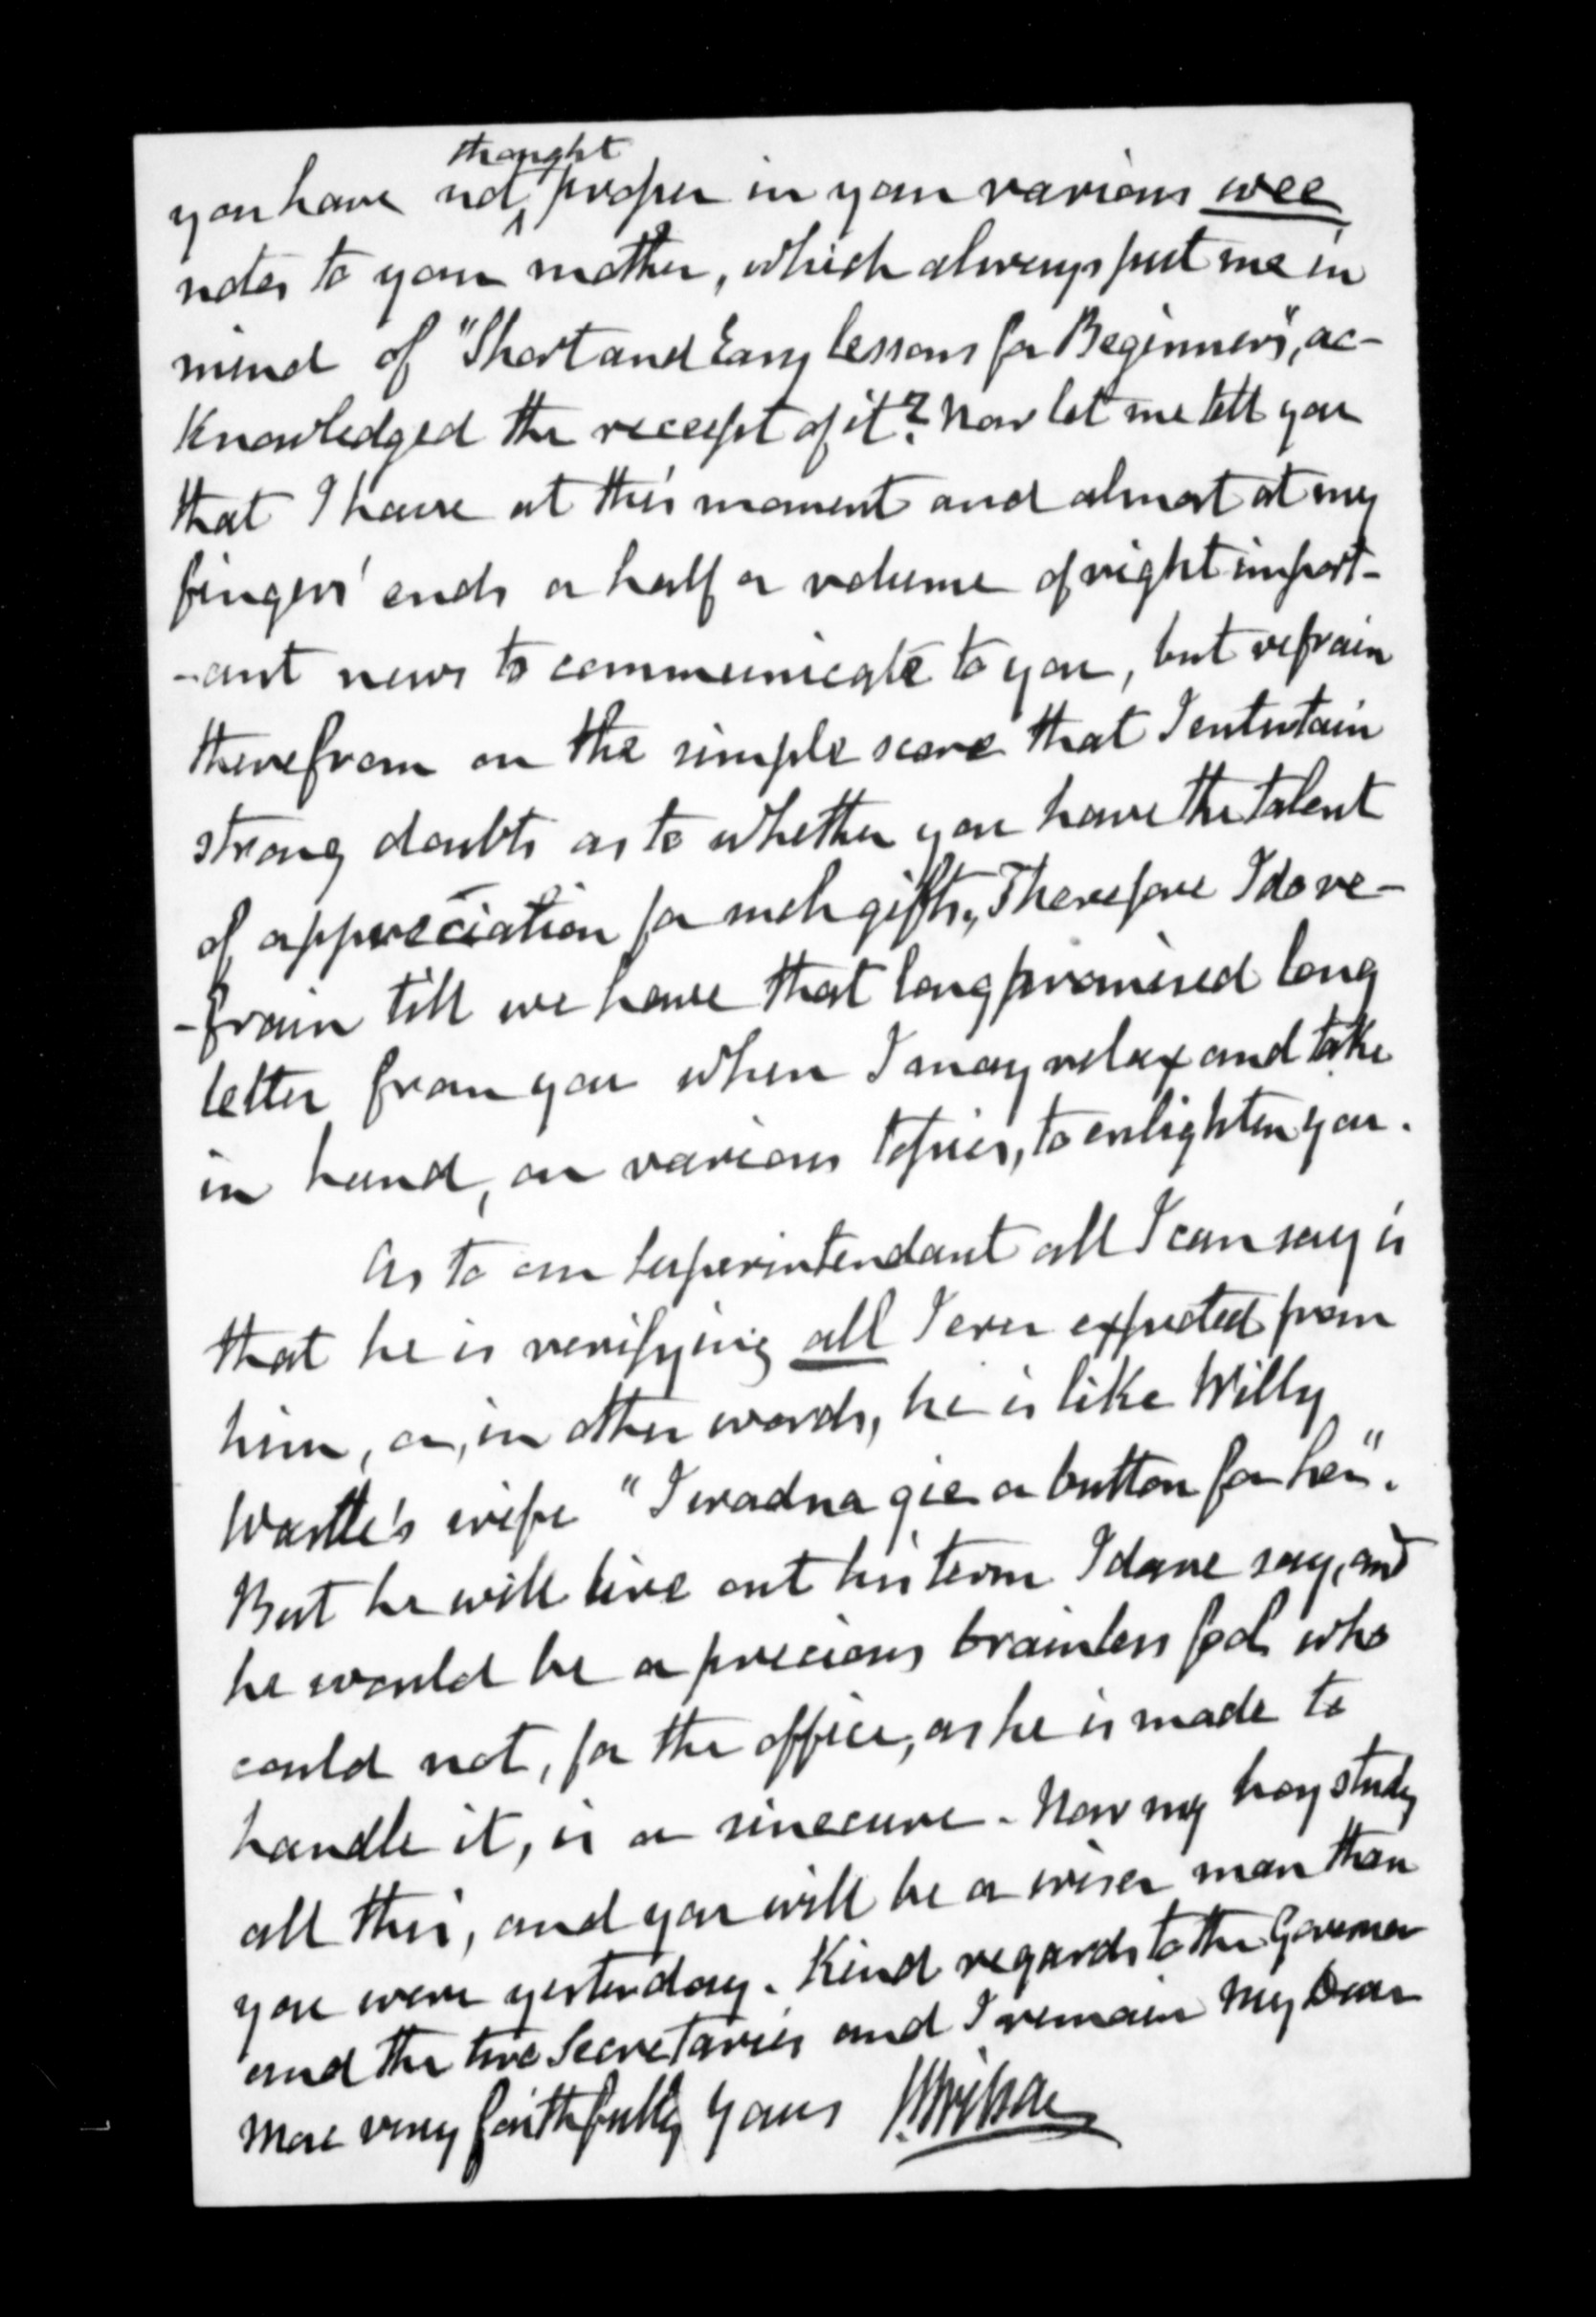 you have not thought proper in your various wee
notes to your mother, which always put me in
mind of "Short and Easy lessons for Beginners", ac-
knowledged the receipt of it? Now let me tell you
that I have at this moment and almost at my
fingers' ends a half a volume of right import-
-ant news to communicate to you, but refrain
therefrom on the simple score that I entertain
strong doubts as to whether you have the talent
of appreciation for such gifts. Therefore I do re-
-frain till we have that long promised long
letter from you when I may relax and take
in hand, on various topics, to enlighten you.
As to our Superintendant all I can say is
that he is verifying all I ever expected from
him, or, in other words, he is like Willy
Wastle's wife "I wadna gie a button for her".
But he will live out his term I dare say, and
he would be a precious brainless fool who
could not, for the office, as he is made to
handle it, is a sinecure. Now my boy study
all this, and you will be a wiser man than
you were yesterday. Kind regards to the Governor
and the two Secretaries and I remain My Dear
More very faithfully yours